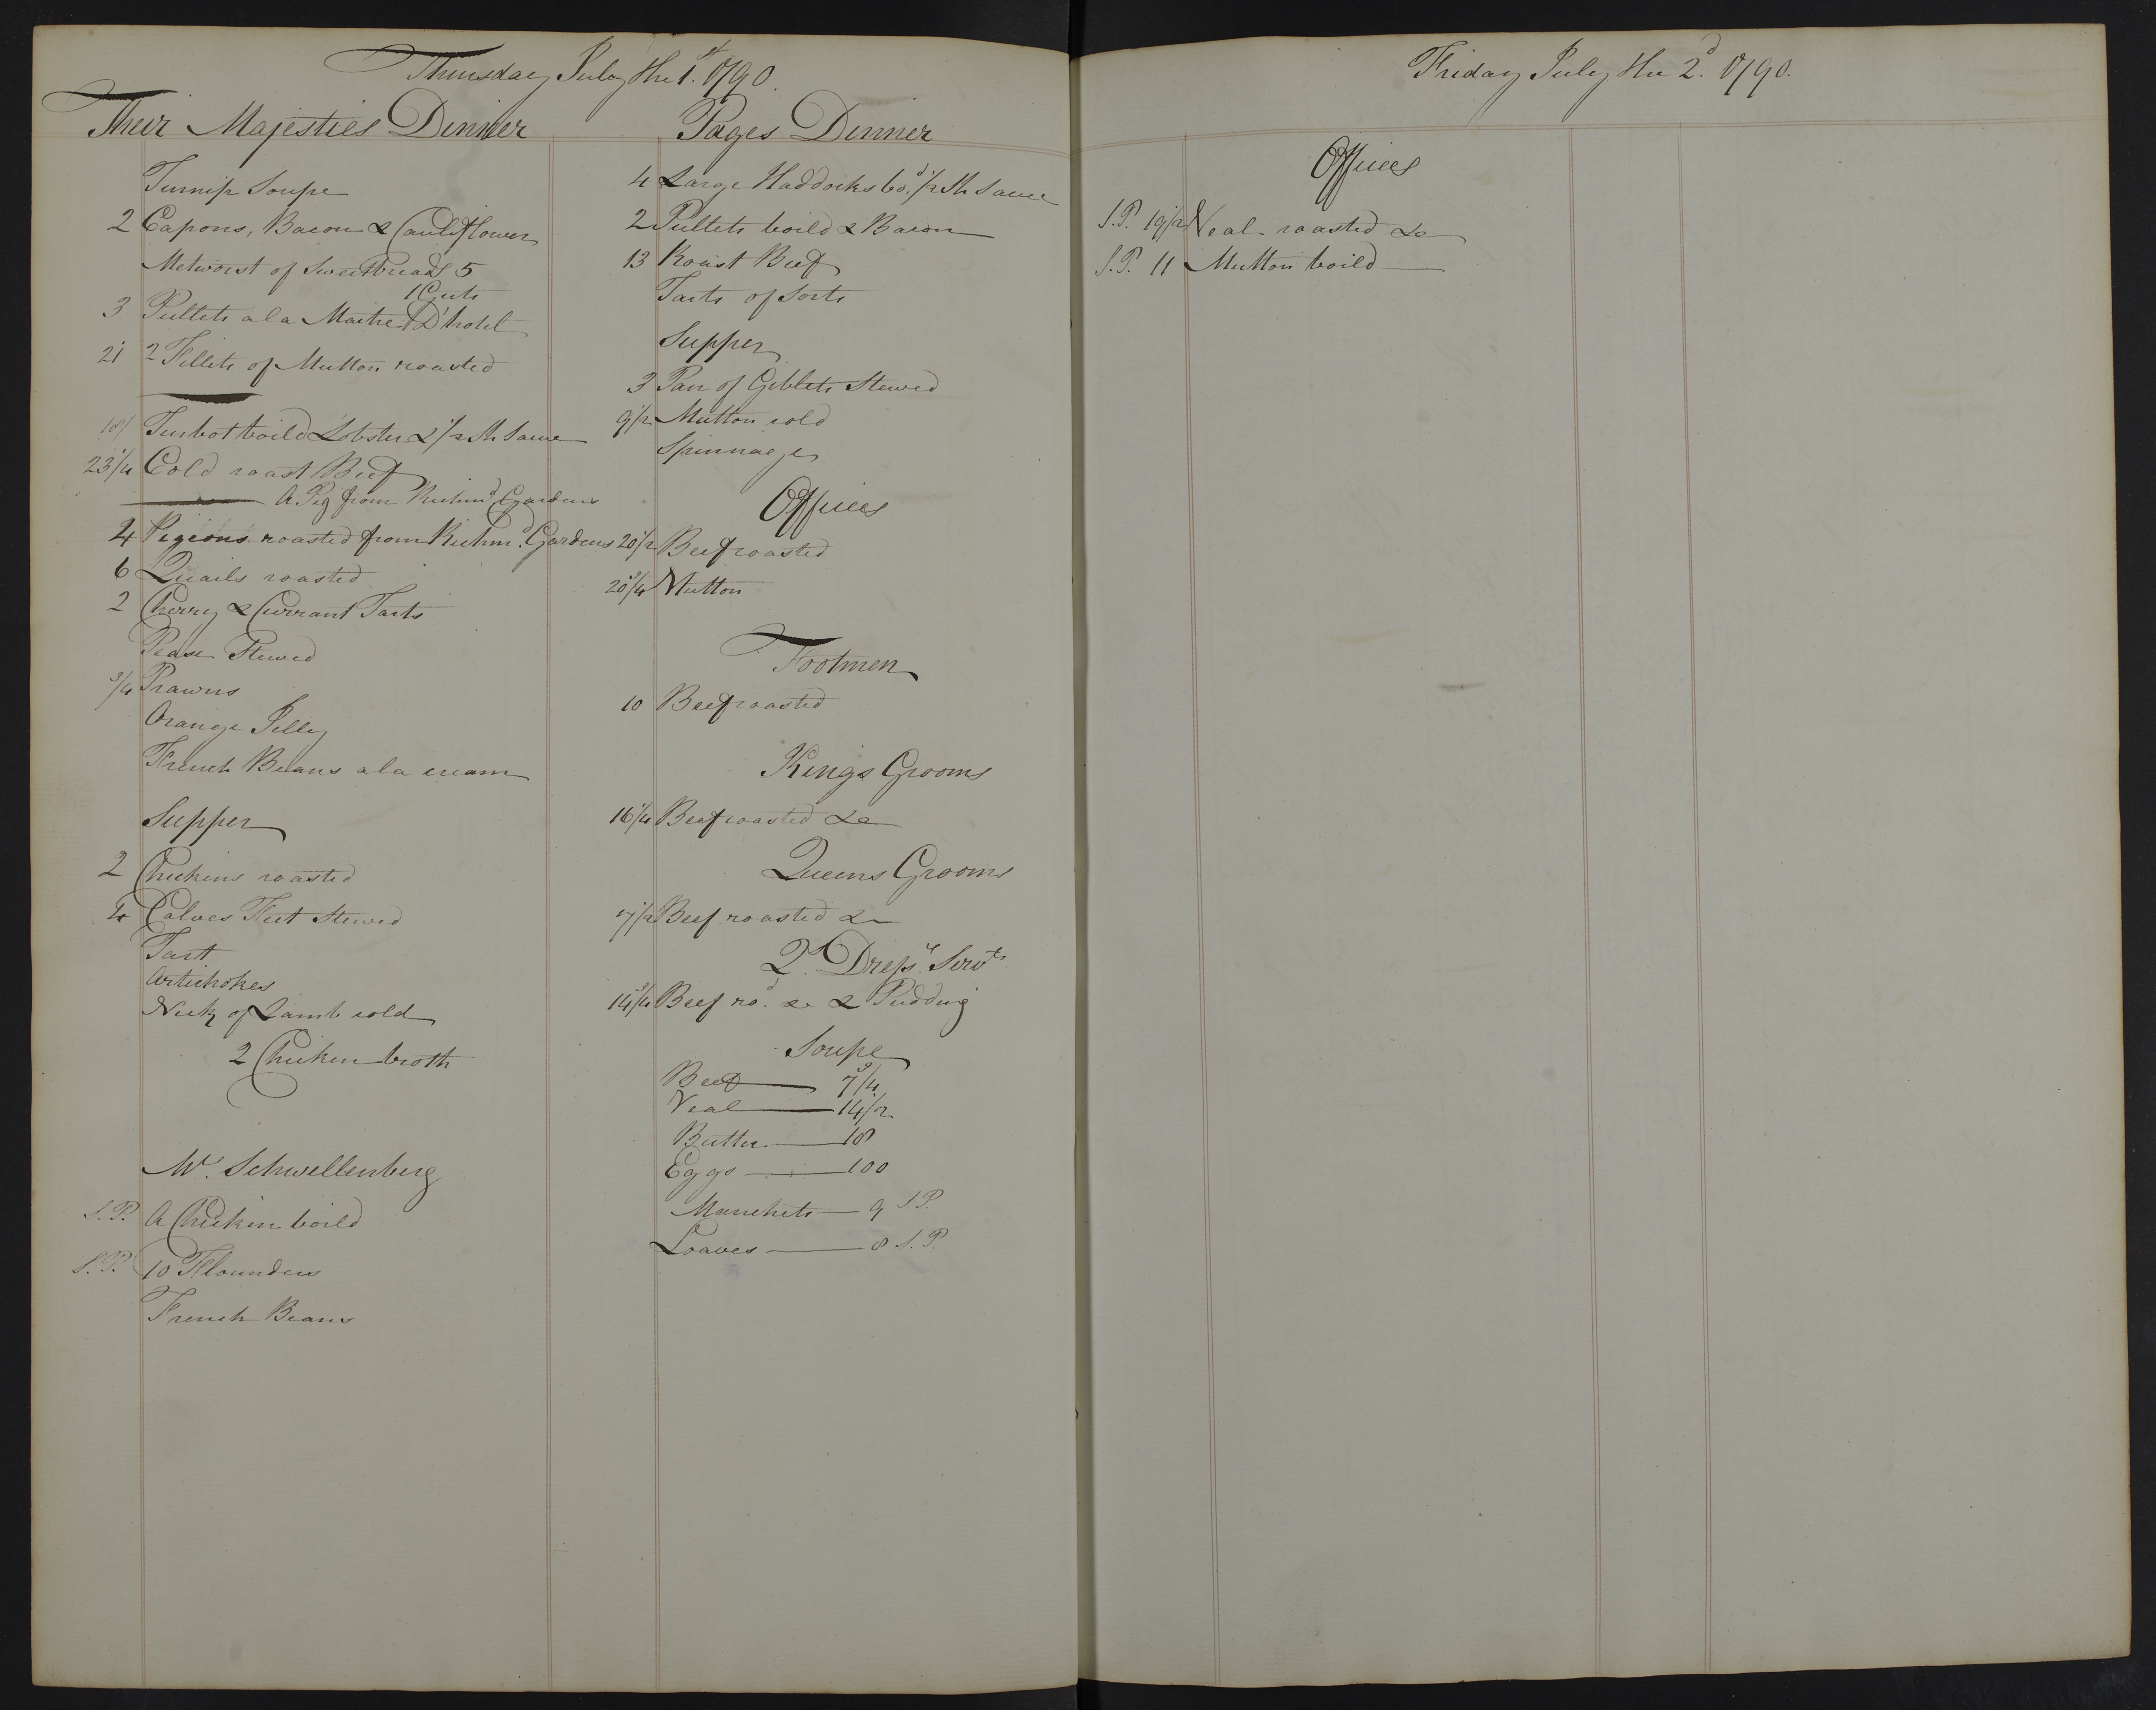 Thursday July the 1st. 1790.
Their Majesties Dinner
Turnip Soupe
2 Capons, Bacon & Cauliflower
Metworst of Sweetbreads 5
1 Guts
3 Pullets a la Maitre D'hotel
21 2 Fillets of Mutton roasted
18 Turbot boild Lobster & 1/2 Sh Sauce
23 1/4 Cold roast Beef
A Pig from Richmd. Gardens
4 Pigeons roasted from Richmd. Gardens
6 Quails roasted
2 Cherry & Currant Tarts
Pease Stewed
3/4 Prawns
Orange Jelly
French Beans a la cream
Supper
2 Chickens roasted
4 Calves Feet Stewed
Tart
Artichokes
Neck of Lamb cold
2 Chicken broth
Mrs. Schwellenberg
S.P. A Chicken boild
S.P. 10 Flounders
French Beans
Pages Dinner
4 Large Haddocks bod. 1/2 Sh Sauce
2 Pullets boild & Bacon
13 Roast Beef
Tarts of Sorts
Supper
3 Pair of Giblets Stewed
9 1/2 Mutton cold
Spinnage
Offices
20 1/2 Beef roasted
20 3/4 Mutton
Footmen
10 Beef roasted
Kings Grooms
16 1/4 Beef roasted &c
Queens Grooms
17 1/2 Beef roasted &c
Qs. Dressrs. Servts.
14 3/4 Beef rod. &c & Pudding
Soupe
Beef 7 3/4
Veal 14 1/2
Butter 18
Eggs 100
Manchets 9 S.P.
Loaves 8 S.P.
Friday July the 2d. 1790.
Offices
S.P. 19 1/2 Veal roasted &c
S.P. 11 Mutton boild